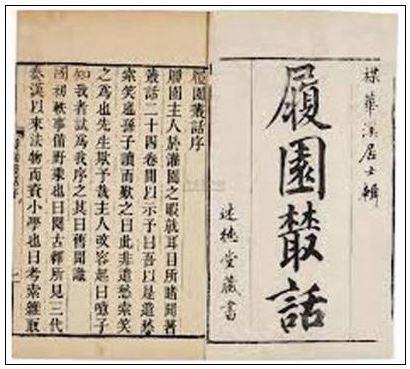 楳華溪居士輯
履園叢話
述德堂藏書
履園叢話序
履園主人於灌園之暇就耳目所睹聞著
叢話二十四卷間以示予曰吾以是遣愁
索笑孫子讀而歎之曰此非遣愁索笑
之爲也先生欺予哉主人改容起曰噫子
知我者試爲我序之其曰舊聞識
國初軼事備野乘也曰閱古釋所見三代
秦漢以來法物而資小學也曰考索雜取